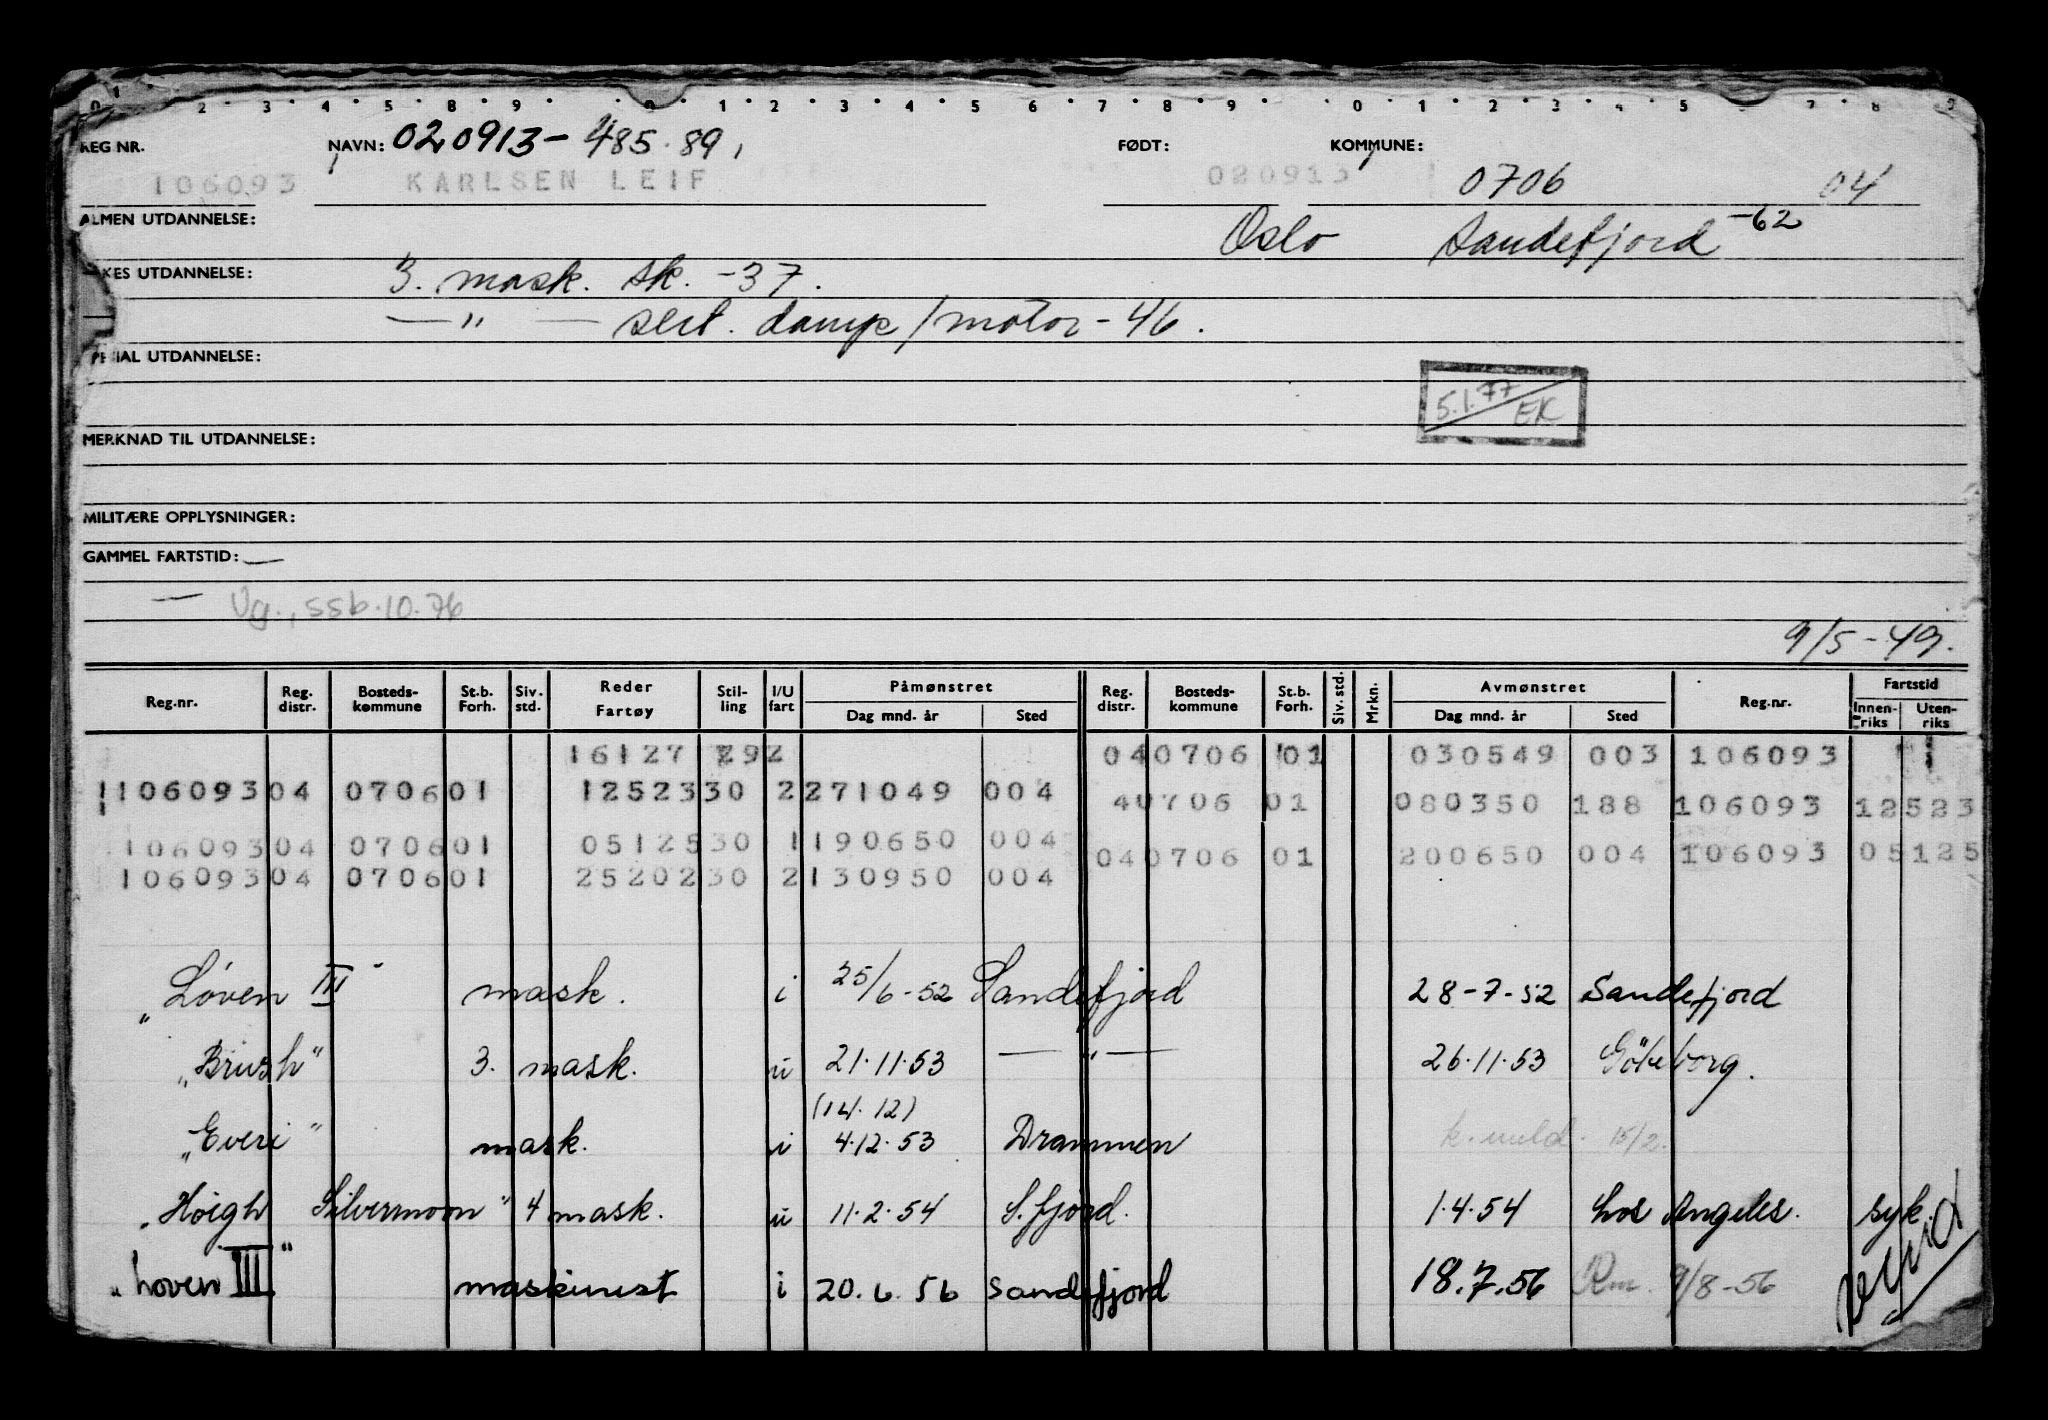 REG NR. NAVN: 020913- 485.89, FØDT: KOMMUNE:
106093 KARLSEN LEIF 020913 0706 04
ALMEN UTDANNELSE: Oslo Sandefjord -62
KES UTDANNELSE: 3. mask. sk. -37.
— " — sert. damp/motor -46.
SPESIAL UTDANNELSE:
5.1.77 EK
MERKNAD TIL UTDANNELSE:
MILITÆRE OPPLYSNINGER:
GAMMEL FARTSTID: —
— Ug., ssb.10.76
9/5-49.
Reg.nr. Reg. distr. Bosteds- kommune St.b. Forh. Siv. std. Reder Fartøy Stil- ling I/U fart Påmønstret Dag mnd. år Sted Reg. distr. Bosteds- kommune St.b. Forh. Siv. std. Mrkn. Avmønstret Dag mnd. år Sted Reg.nr. Fartstid Innen- riks Uten- riks
16127 292 040706 01 030549 003 106093
110609304 070601 1252330 2271049 004 40706 01 080350 188 106093 12523
10609304 070601 0512530 1190650 004 040706 01 200650 004 106093 05125
10609304 070601 2520230 2130950 004
„Løven III" mask. i 25/6-52 Sandefjord 28-7-52 Sandefjord
„Brush" 3. mask. u 21.11.53 — " — 26.11.53 Göteborg.
(14.12)
„Everi" mask. i 4.12.53 Drammen k. meld. 15/2.
„Høigh Silvermoon" 4 mask. u 11.2.54 S.fjord. 1.4.54 Los Angeles. syk.
„Løven III" maskinist i 20.6.56 Sandefjord 18.7.56 Rm. 9/8-56